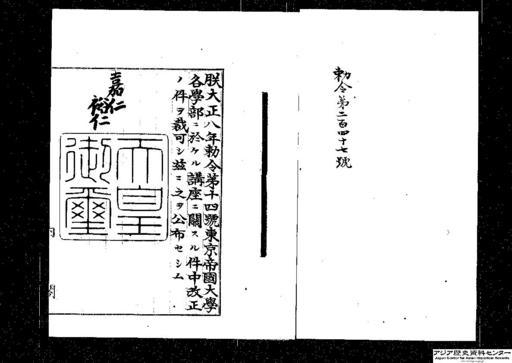 勅令第二百四十七號
朕大正八年勅令第十四號東京帝國大學
各學部ニ於ケル講座ニ關スル件中改正
ノ件ヲ裁可シ茲ニ之ヲ公布セシム
嘉仁
裕仁
天皇
御璽
内閣
アジア歴史資料センター
Japan Center for Asian Historical Records